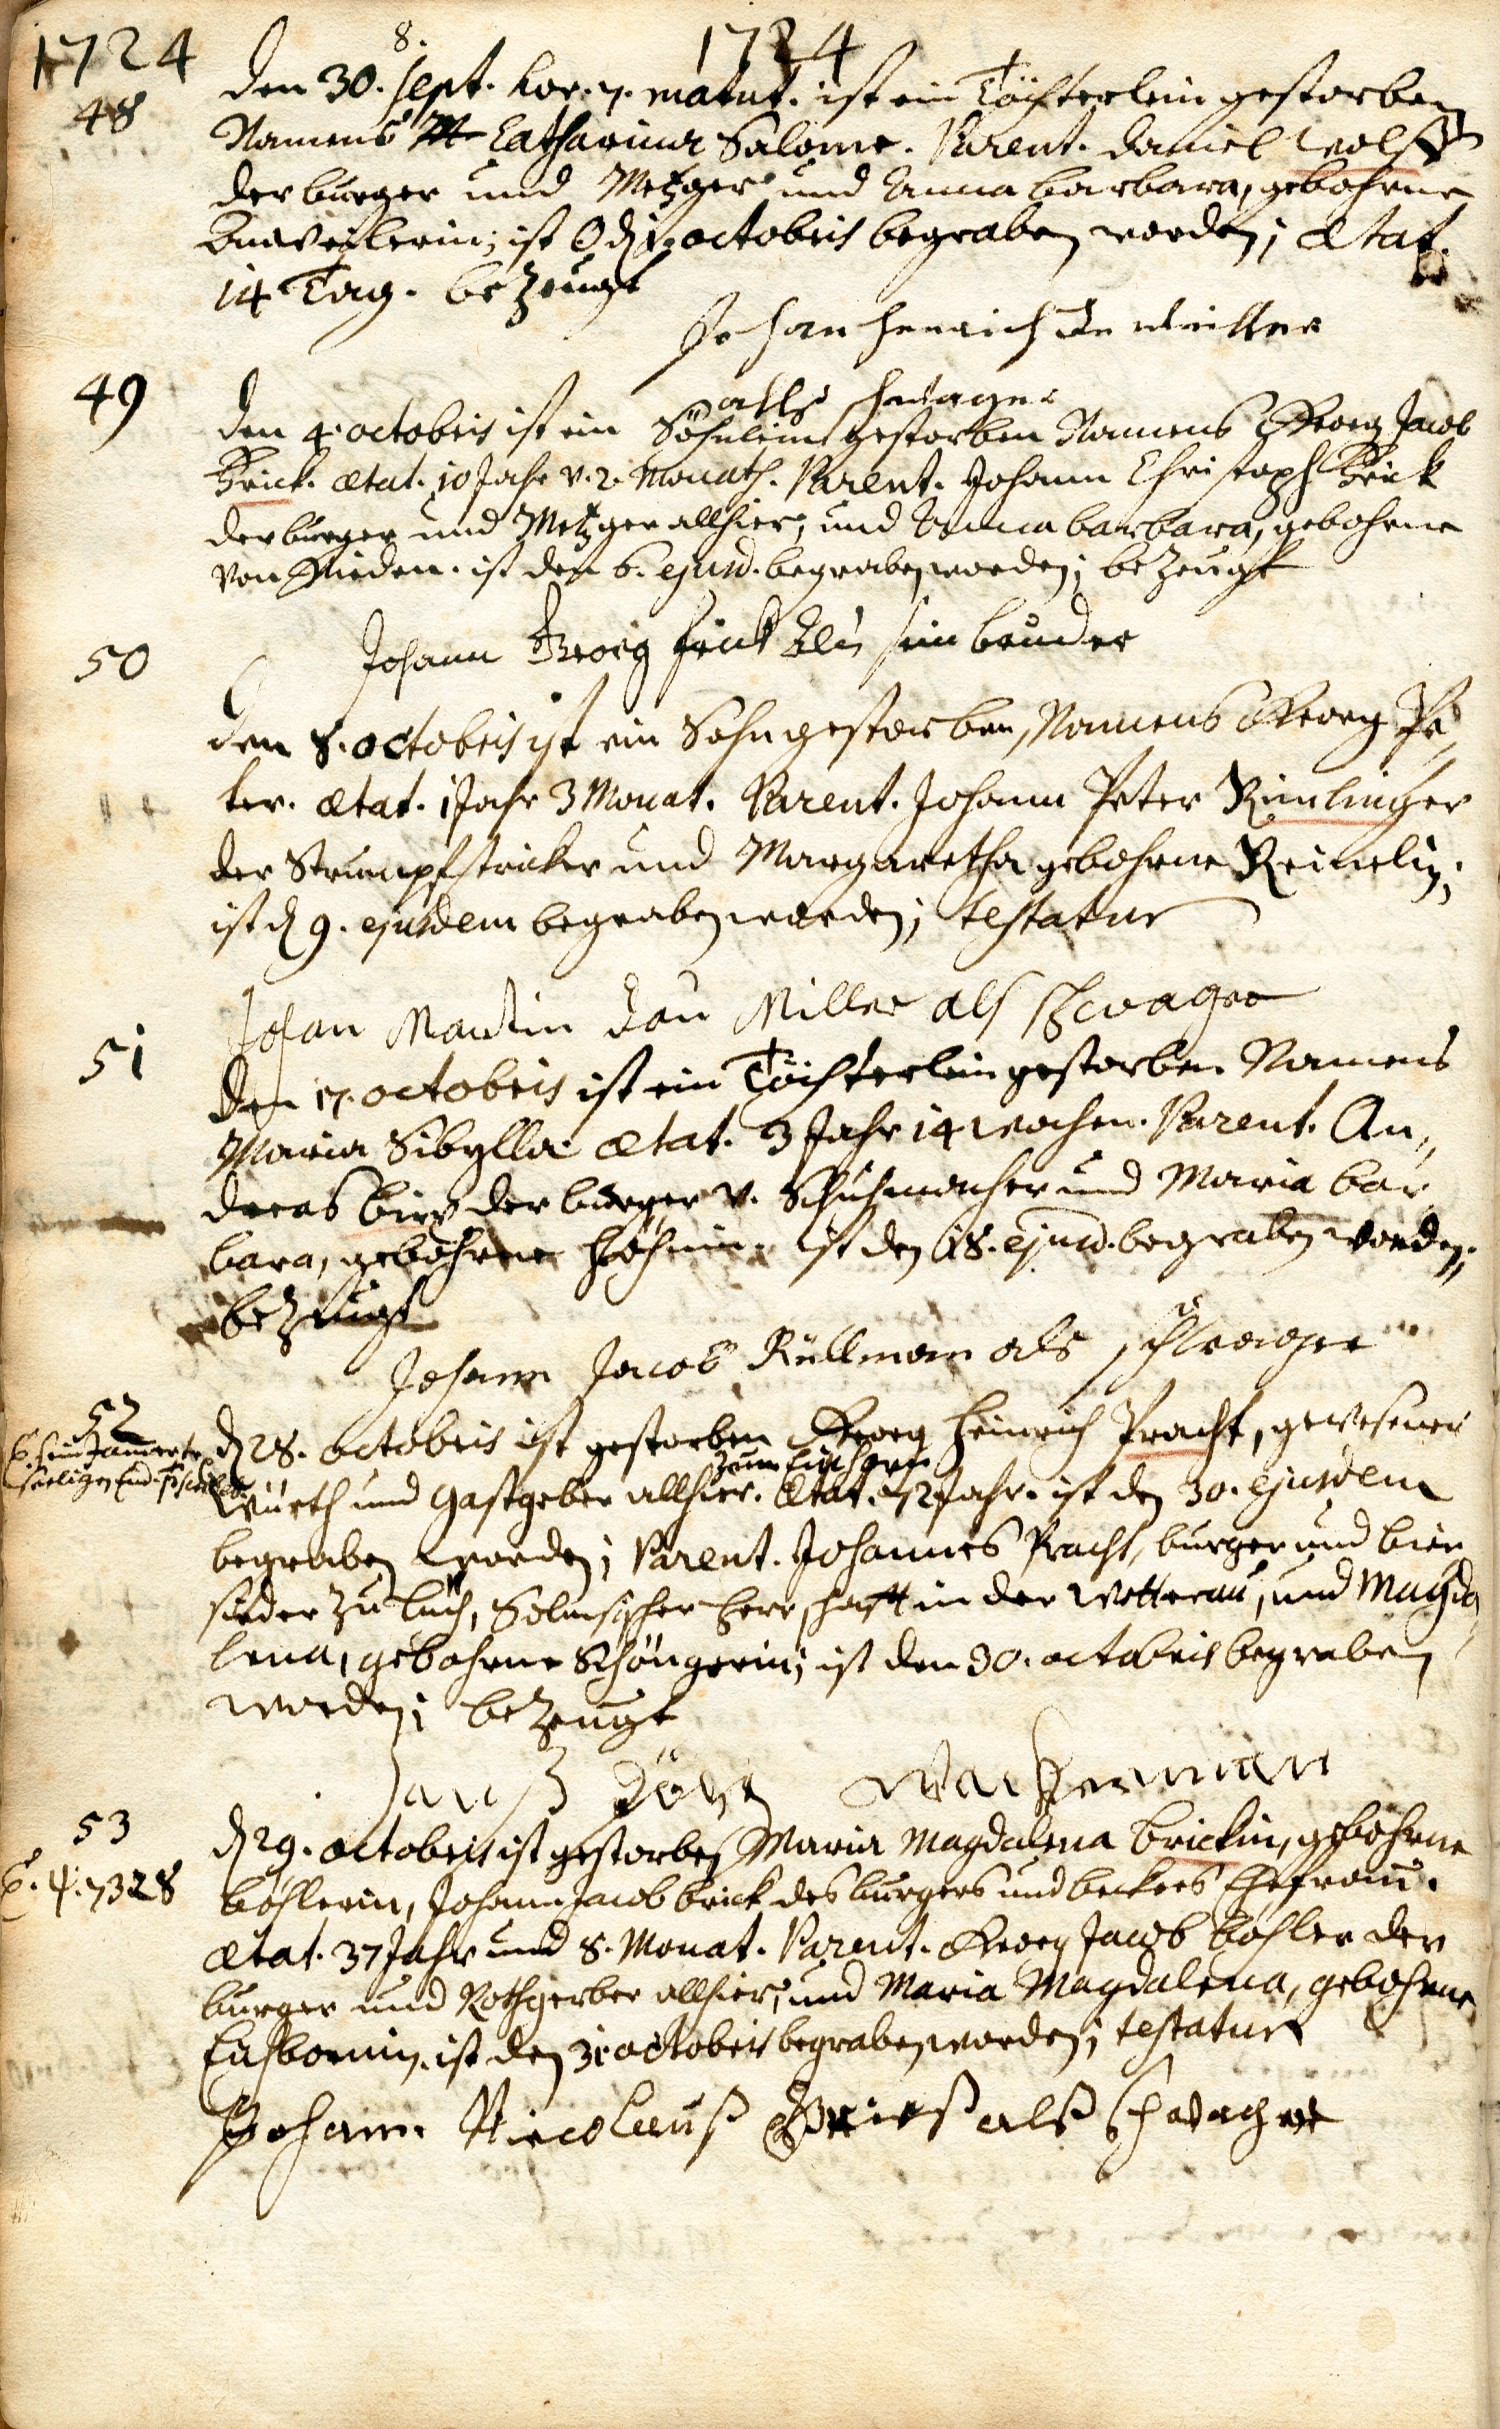 1724
8.
1724
48
den 30. Sept. hor. 7. matut. ist ein Töchterlein gestorben
Namens Catharina Salome. Parent. Daniel Wolff
der burger und Metzger und Anna barbara, gebohrne
ist d 1. octobris begraben worden; ætat.
14 Tag. bezeugt
Johan Henrich
alls schwager
49
den 4. octobris ist ein Söhnlein gestorben Namens Georg Jacob
Frick. ætat. 10 Jahr v. 2. Monath. Parent. Johann Christoph Frick
der burger und Metzger allhier, und Anna barbara, gebohrne
von ist den 6. ejusd. begraben worden; bezeugt
Johann Georg frick sein bruder
50
den 8. octobris ist ein Sohn gestorben, Namens Georg Pe„
ter. ætat. 1 Jahr 3 Monat. Parent. Johann Peter Rimlinger
der Strumpfstricker und Margaretha gebohrne
ist d 9. ejusdem begraben worden; testatur
Johan Martin Miller als schwager
51
den 17. octobris ist ein Töchterlein gestorben Namens
Maria Sibylla ætat. 3 Jahr 14 wochen. Parent. An„
dreas der burger v. Schuhmacher und Maria bar
bara, gebohrne ist den 18. ejusd. begraben worden;
bezeugt
Johann Jacob Rüllman als schwager
52
d 28. octobris ist gestorben Georg Heinrich Pracht, gewesener
zum
Würth und Gastgeber allhier. ætat. 52 Jahr. ist den 30. ejusdem
begraben worden; Parent. Johannes Pracht, burger und bier
sieder zu Lich, Solmsischer herrschaft in der Wetterau, und Magda
lena, gebohrne Schöngerin; ist den 30. octobris begraben
worden; bezeugt
Hanß Wackerman
53
7328
d 29. octobris ist gestorben Maria Magdalena brickin, gebohrne
böhlerin, Johann Jacob brick des burgers und beckers Ehefrau.
ætat. 37 Jahr und 8. Monat. Parent. Georg Jacob böhler der
burger und Rothgerber allhier, und Maria Magdalena, gebohrne
ist den 31 octobris begraben worden; testatur
Johann Nicolauß alß schwacher